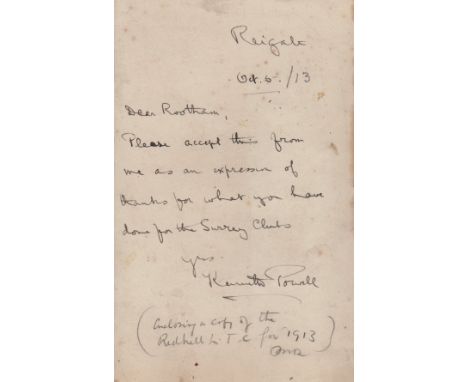 Reigate
Oct. 5. /13
Dear Rootham,
Please accept this from
me as an expression of
thanks for what you have
done for the Surrey Clubs
yrs.
Kenneth Powell
(Enclosing a copy of the
Redhill L. T. C for 1913